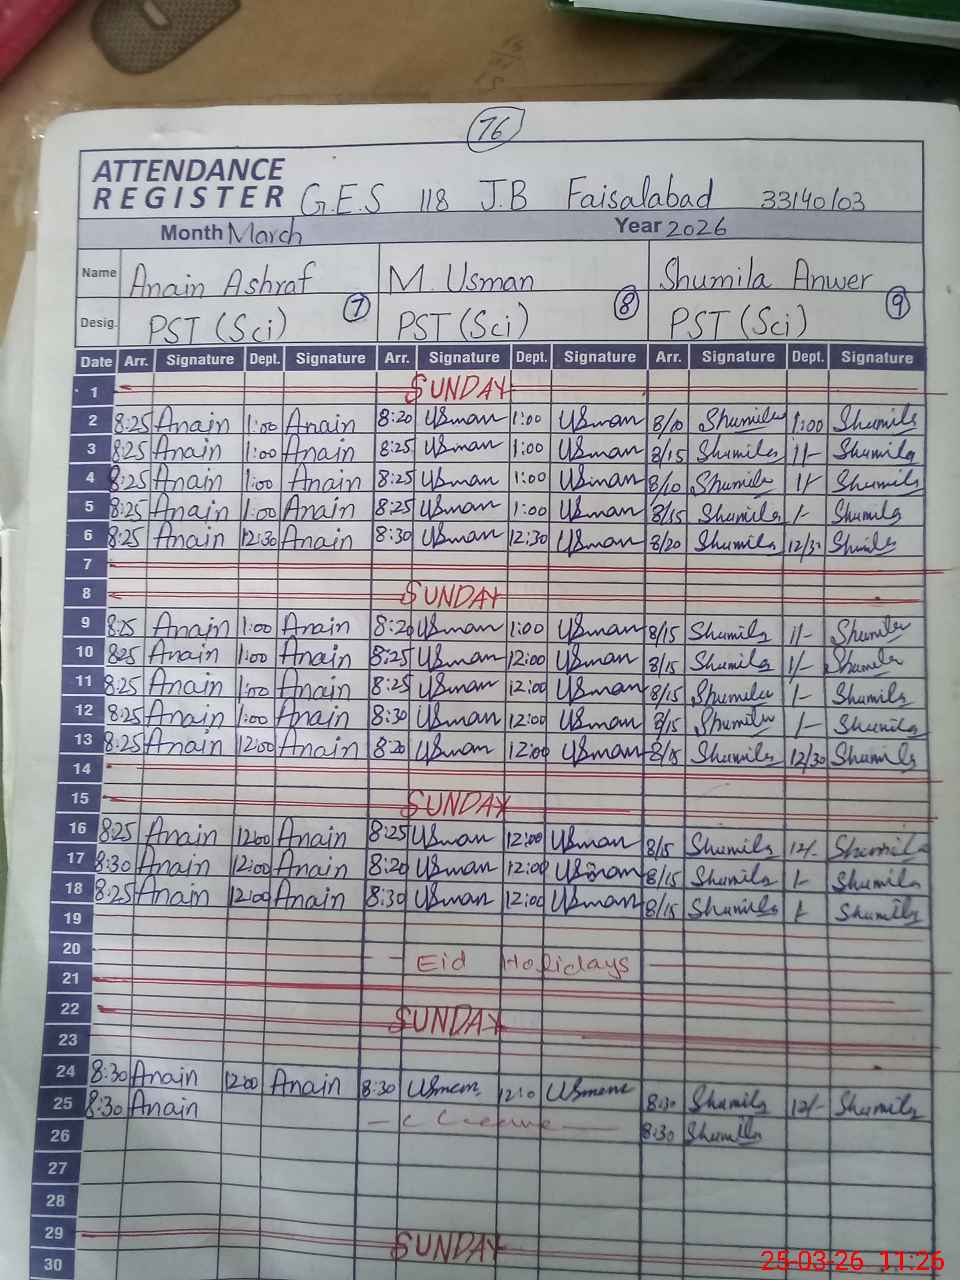 76
ATTENDANCE
REGISTER G.E.S 118 J.B Faisalabad 33140103
Month March Year 2026
Name Anain Ashraf M. Usman Shumila Anwer
Desig. PST (Sci) 7 PST (Sci) 8 PST (Sci) 9
Date Arr. Signature Dept. Signature Arr. Signature Dept. Signature Arr. Signature Dept. Signature
1 SUNDAY
2 8:25 Anain 1:00 Anain 8:20 Usman 1:00 Usman 8/10 Shumila 1:00 Shumila
3 8:25 Anain 1:00 Anain 8:25 Usman 1:00 Usman 8/15 Shumila 1/- Shumila
4 8:25 Anain 1:00 Anain 8:25 Usman 1:00 Usman 8/10 Shumila 1/- Shumila
5 8:25 Anain 1:00 Anain 8:25 Usman 1:00 Usman 8/15 Shumila 1/- Shumila
6 8:25 Anain 12:30 Anain 8:30 Usman 12:30 Usman 8/20 Shumila 12/30 Shumila
7
8 SUNDAY
9 8:25 Anain 1:00 Anain 8:20 Usman 1:00 Usman 8/15 Shumila 1/- Shumila
10 8:25 Anain 1:00 Anain 8:25 Usman 12:00 Usman 8/15 Shumila 1/- Shumila
11 8:25 Anain 1:00 Anain 8:25 Usman 12:00 Usman 8/15 Shumila 1/- Shumila
12 8:25 Anain 1:00 Anain 8:30 Usman 12:00 Usman 8/15 Shumila 1/- Shumila
13 8:25 Anain 12:00 Anain 8:20 Usman 12:00 Usman 8/15 Shumila 12/30 Shumila
14
15 SUNDAY
16 8:25 Anain 12:00 Anain 8:25 Usman 12:00 Usman 8/15 Shumila 12/- Shumila
17 8:30 Anain 12:00 Anain 8:20 Usman 12:00 Usman 8/15 Shumila 1- Shumila
18 8:25 Anain 12:00 Anain 8:30 Usman 12:00 Usman 8/15 Shumila 1- Shumila
19
20 Eid Holidays
21
22 SUNDAY
23
24 8:30 Anain 12:00 Anain 8:30 Usman 12:0 Usman 8:30 Shumila 12/- Shumila
25 8:30 Anain 8:30 Shumila
26
27
28
29 SUNDAY
30
25-03-26 11:26